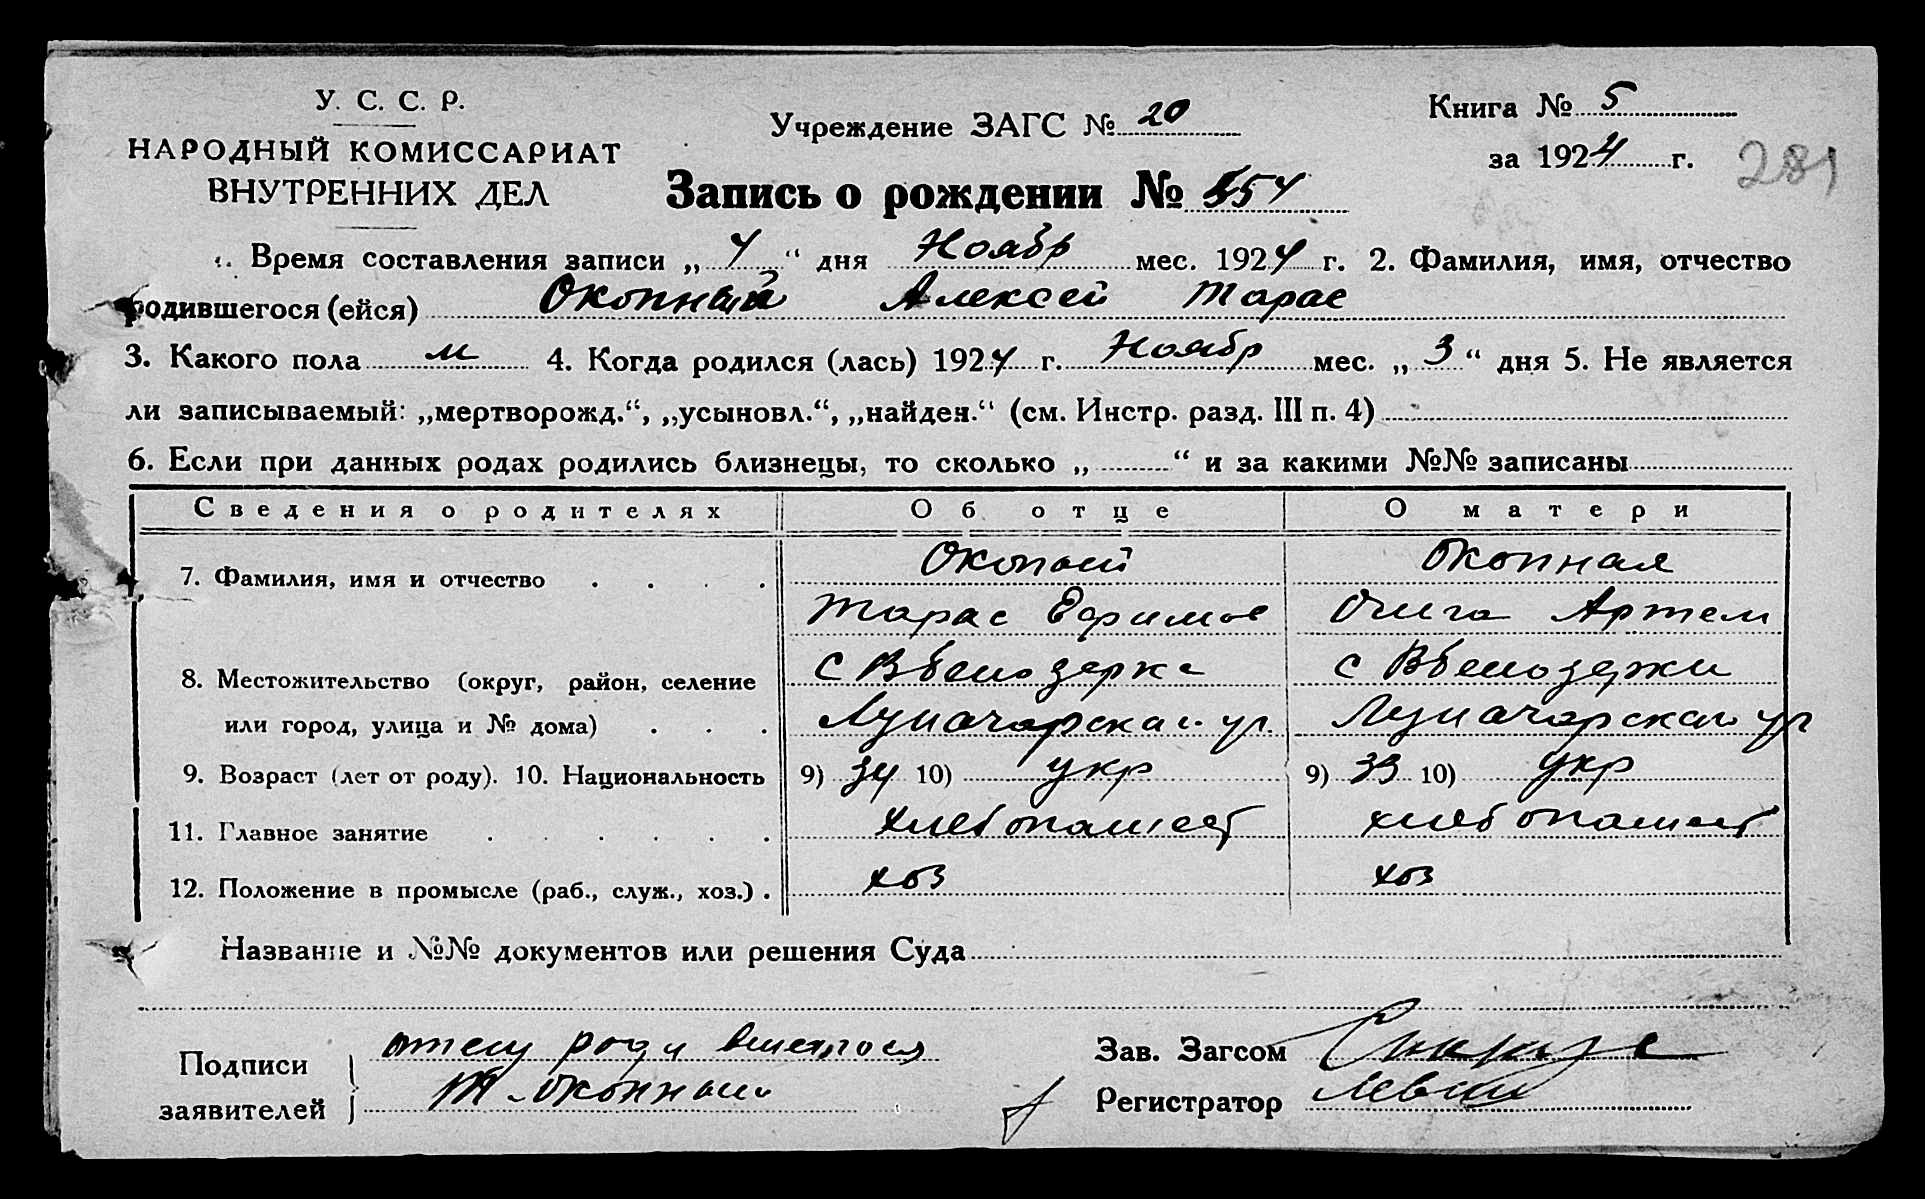 У. С. С. Р.
НАРОДНЫЙ КОМИССАРИАТ
ВНУТРЕННИХ ДЕЛ
Учреждение ЗАГС № 20
Книга № 5
за 1924 г.
281
Запись о рождении № 554
Время составления записи „ 4 “ дня Ноябр мес. 1924 г. 2. Фамилия, имя, отчество
родившегося (ейся) Окопный Алексей Тарас
3. Какого пола м 4. Когда родился (лась) 1924 г. Ноябр мес. „ 3 “ дня 5. Не является
ли записываемый: „мертворожд.“, „усыновл.“, „найден.“ (см. Инстр. разд. III п. 4)
6. Если при данных родах родились близнецы, то сколько „ “ и за какими №№ записаны
Сведения о родителях Об отце О матери
7. Фамилия, имя и отчество . . . . Окопый Окопная
Тарас Ефимов Ольга Артем
8. Местожительство (округ, район, селение с Вбелозерка с Вбелозерки
или город, улица и № дома) . . . Луначарская ул. Луначарская ул
9. Возраст (лет от роду). 10. Национальность 9) 34 10) укр 9) 33 10) укр
11. Главное занятие . . . . . . хлебопашест хлебопашест
12. Положение в промысле (раб., служ., хоз.) . хоз хоз
Название и №№ документов или решения Суда
Подписи
заявителей
отец
Т. Окопный
Зав. Загсом
Регистратор